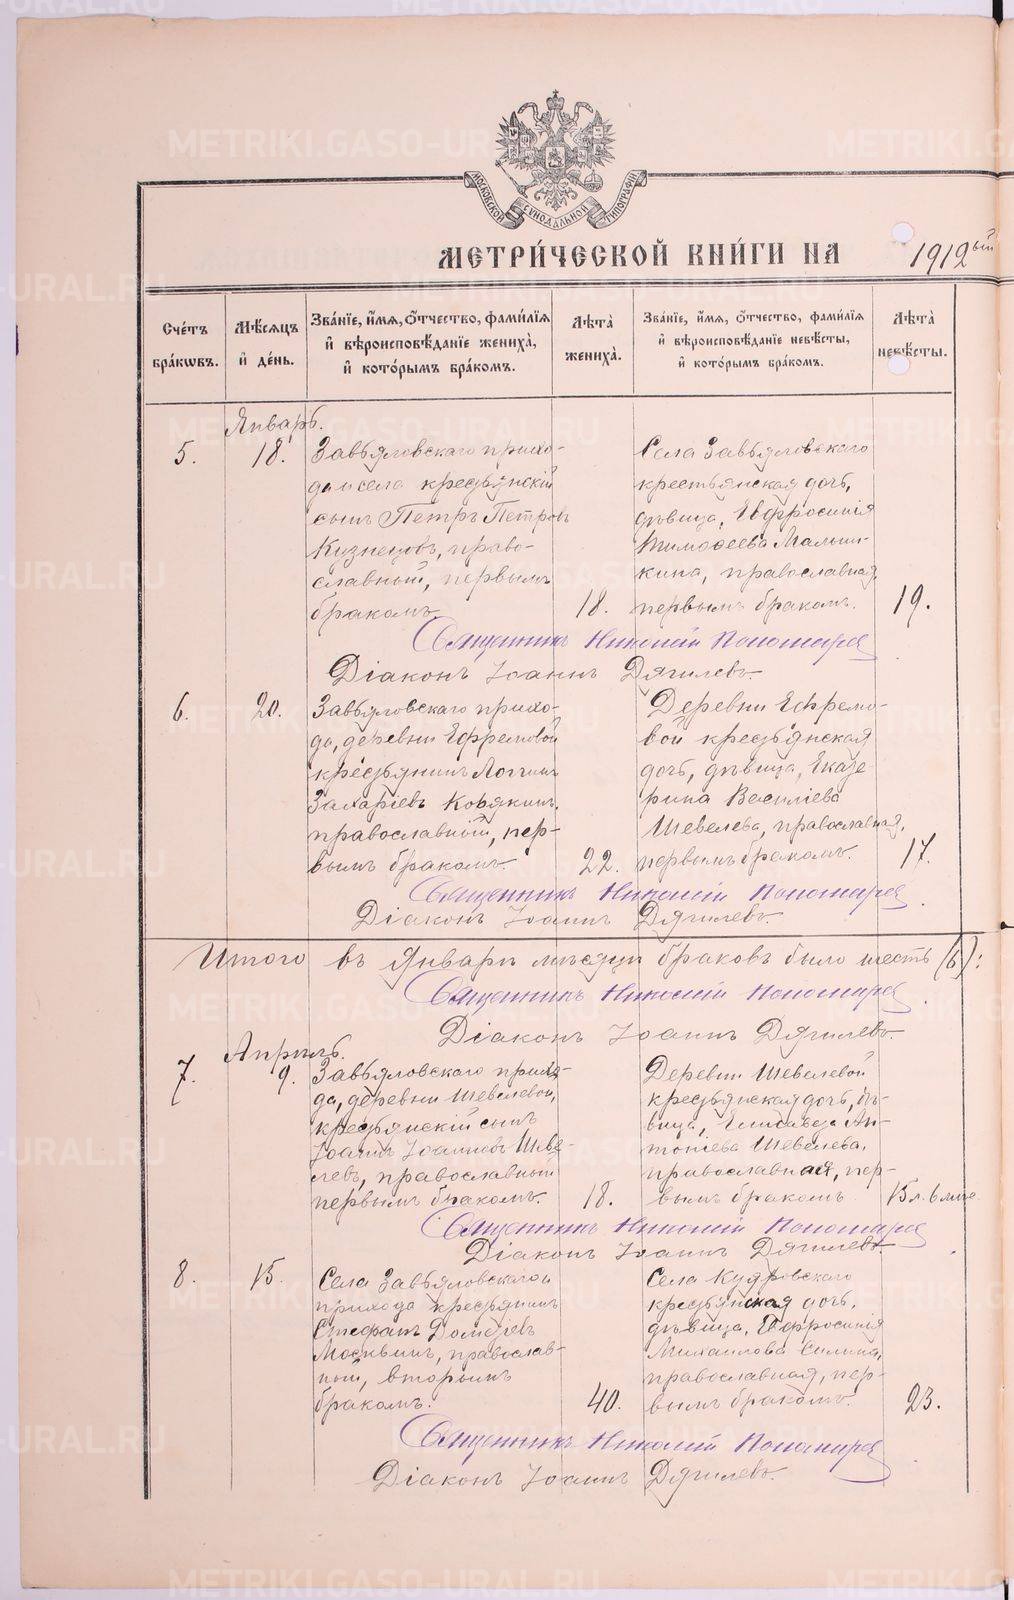 МОСКОВСКОЙ СѴНОДАЛЬНОЙ ТИПОГРАФІИ
МЕТРИ́ЧЕСКОЙ КНИ́ГИ НА 1912ый
Сче́тъ бра́кωвъ.
Мѣ́сѧцъ и҆ де́нь.
Зва́нїе, и҆́мѧ, ѻ҆́тчество, фами́лїѧ и҆ вѣроисповѣ́данїе жениха̀, и҆ кото́рымъ бра́комъ.
Лѣ́та̀ жениха̀.
Зва́нїе, и҆́мѧ, ѻ҆́тчество, фами́лїѧ и҆ вѣроисповѣ́данїе невѣ́сты, и҆ кото́рымъ бра́комъ.
Лѣ́та̀ невѣ́сты.
Январь.
5.
18.
Завьяловскаго прихо-
да и села крестьянскій
сынъ Петръ Петровъ
Кузнецовъ, право-
славный, первымъ
бракомъ.
18.
Села Завьяловскаго
крестьянская дочь,
дѣвица, Евфросинія
Тимоѳеева Малыш-
кина, православная,
первымъ бракомъ.
19.
Священникъ Николай Пономарев
Діаконъ Іоаннъ Дягилевъ.
6.
20.
Завьяловскаго прихо-
да, деревни Ефремовой
крестьянинъ Логгинъ
Захаріевъ Корякинъ,
православный, пер-
вымъ бракомъ.
22.
Деревни Ефремо-
вой крестьянская
дочь, дѣвица, Екате-
рина Василіева
Шевелева, православная,
первымъ бракомъ.
17.
Священникъ Николай Пономарев
Діаконъ Іоаннъ Дягилевъ.
Итого въ Январѣ мѣсяцѣ браковъ было шесть (6):
Священникъ Николай Пономарев
Діаконъ Іоаннъ Дягилевъ.
Апрѣль.
7.
9.
Завьяловскаго прихо-
да, деревни Шевелевой,
крестьянскій сынъ
Іоаннъ Іоанновъ Шеве-
левъ, православный
первымъ бракомъ.
18.
Деревни Шевелевой
крестьянская дочь, дѣ-
вица, Елисавета Ан-
тоніева Шевелева,
православная, пер-
вымъ бракомъ
15 л. 6 мѣс.
Священникъ Николай Пономарев
Діаконъ Іоаннъ Дягилевъ
8.
15.
Села Завьяловскаго и
прихода крестьянинъ
Стефанъ Дометіевъ
Москвинъ, православ-
ный, вторымъ
бракомъ.
40.
Села Кудровскаго
крестьянская дочь,
дѣвица, Евфросинія
Михаилова Силина,
православная, пер-
вымъ бракомъ.
23.
Священникъ Николай Пономарев
Діаконъ Іоаннъ Дягилевъ.
METRIKI.GASO-URAL.RU